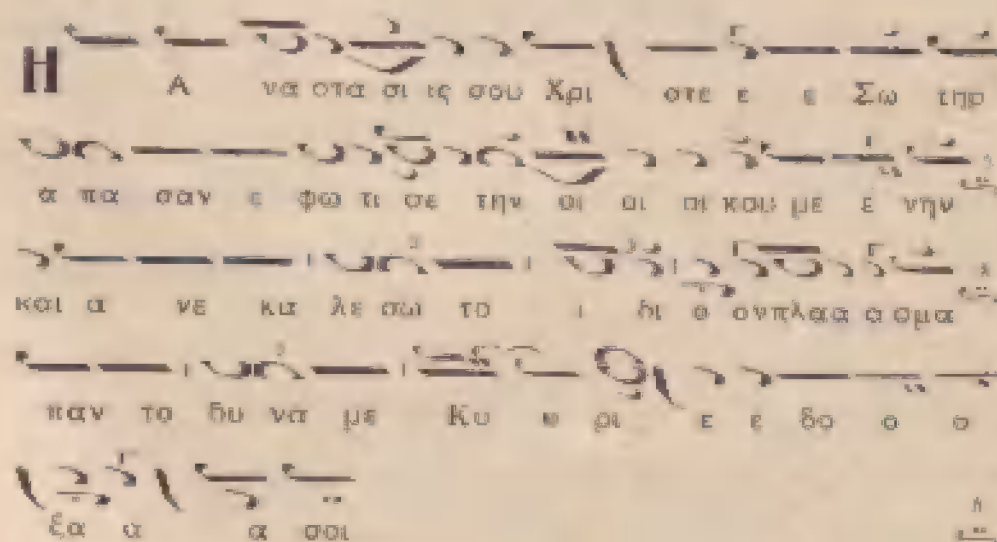 Η Α να στα σι ις σου Χρι στε ε ε Σω τηρ
ά πα σαν ε φω τι σε την οι οι οι κου με έ νην
και α νε κα λε σω το ι δι ο ον πλαα α σμα
παν το δυ να με Κυ υ ρι ε ε δο ο ο
ξα α α σοι